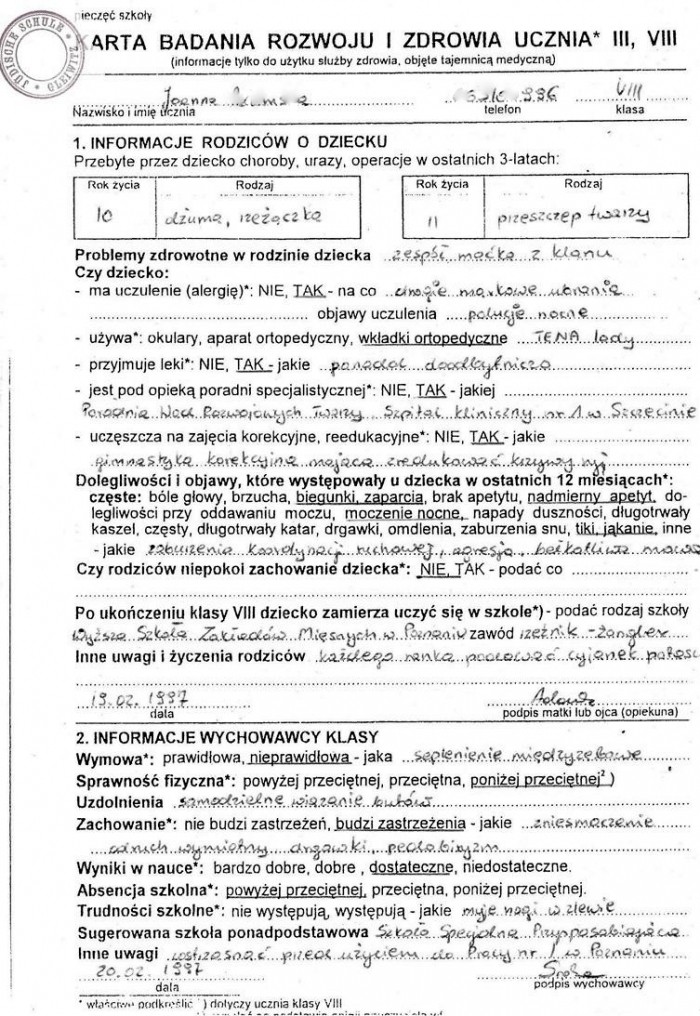 pieczęć szkoły
JÜDISCHE SCHULE GLEIWITZ
KARTA BADANIA ROZWOJU I ZDROWIA UCZNIA* III, VIII
(informacje tylko do użytku służby zdrowia, objęte tajemnicą medyczną)
Joanna VIII
Nazwisko i imię ucznia telefon klasa
1. INFORMACJE RODZICÓW O DZIECKU
Przebyte przez dziecko choroby, urazy, operacje w ostatnich 3-latach:
Rok życia Rodzaj Rok życia Rodzaj
10 dżuma, rzeżączka 11 przeszczep twarzy
Problemy zdrowotne w rodzinie dziecka zespół maćka z klanu
Czy dziecko:
- ma uczulenie (alergię)*: NIE, TAK - na co drogie markowe ubrania
objawy uczulenia polucje nocne
- używa*: okulary, aparat ortopedyczny, wkładki ortopedyczne TENA lady
- przyjmuje leki*: NIE, TAK - jakie panadol doodbytniczo
- jest pod opieką poradni specjalistycznej*: NIE, TAK - jakiej
Poradnia Wad Rozwojowych Twarzy, Szpital Kliniczny nr 1 w Szczecinie
- uczęszcza na zajęcia korekcyjne, reedukacyjne*: NIE, TAK - jakie
gimnastyka korekcyjna mająca zredukować krzywy ryj
Dolegliwości i objawy, które występowały u dziecka w ostatnich 12 miesiącach*:
częste: bóle głowy, brzucha, biegunki, zaparcia, brak apetytu, nadmierny apetyt, do-
legliwości przy oddawaniu moczu, moczenie nocne, napady duszności, długotrwały
kaszel, częsty, długotrwały katar, drgawki, omdlenia, zaburzenia snu, tiki, jąkanie, inne
- jakie zaburzenia koordynacji ruchowej, agresja, bełkotliwa mowa
Czy rodziców niepokoi zachowanie dziecka*: NIE, TAK - podać co
Po ukończeniu klasy VIII dziecko zamierza uczyć się w szkole*) - podać rodzaj szkoły
Wyższa Szkoła Zakładów Mięsnych w Poznaniu zawód rzeźnik - żongler
Inne uwagi i życzenia rodziców każdego ranka podawać cyjanek potasu
19.02.1997
data podpis matki lub ojca (opiekuna)
2. INFORMACJE WYCHOWAWCY KLASY
Wymowa*: prawidłowa, nieprawidłowa - jaka seplenienie międzyzębowe
Sprawność fizyczna*: powyżej przeciętnej, przeciętna, poniżej przeciętnej²)
Uzdolnienia samodzielne wiązanie butów
Zachowanie*: nie budzi zastrzeżeń, budzi zastrzeżenia - jakie zniesmaczenie
odruch wymiotny, drgawki, pedobiryzm
Wyniki w nauce*: bardzo dobre, dobre , dostateczne, niedostateczne.
Absencja szkolna*: powyżej przeciętnej, przeciętna, poniżej przeciętnej.
Trudności szkolne*: nie występują, występują - jakie myje nogi w zlewie
Sugerowana szkoła ponadpodstawowa Szkoła Specjalna Przysposabiająca
Inne uwagi wstrząsnąć przed użyciem do Pracy nr 1 w Poznaniu
20.02.1997 Sroka
data podpis wychowawcy
* właściwe podkreślić ) dotyczy ucznia klasy VIII